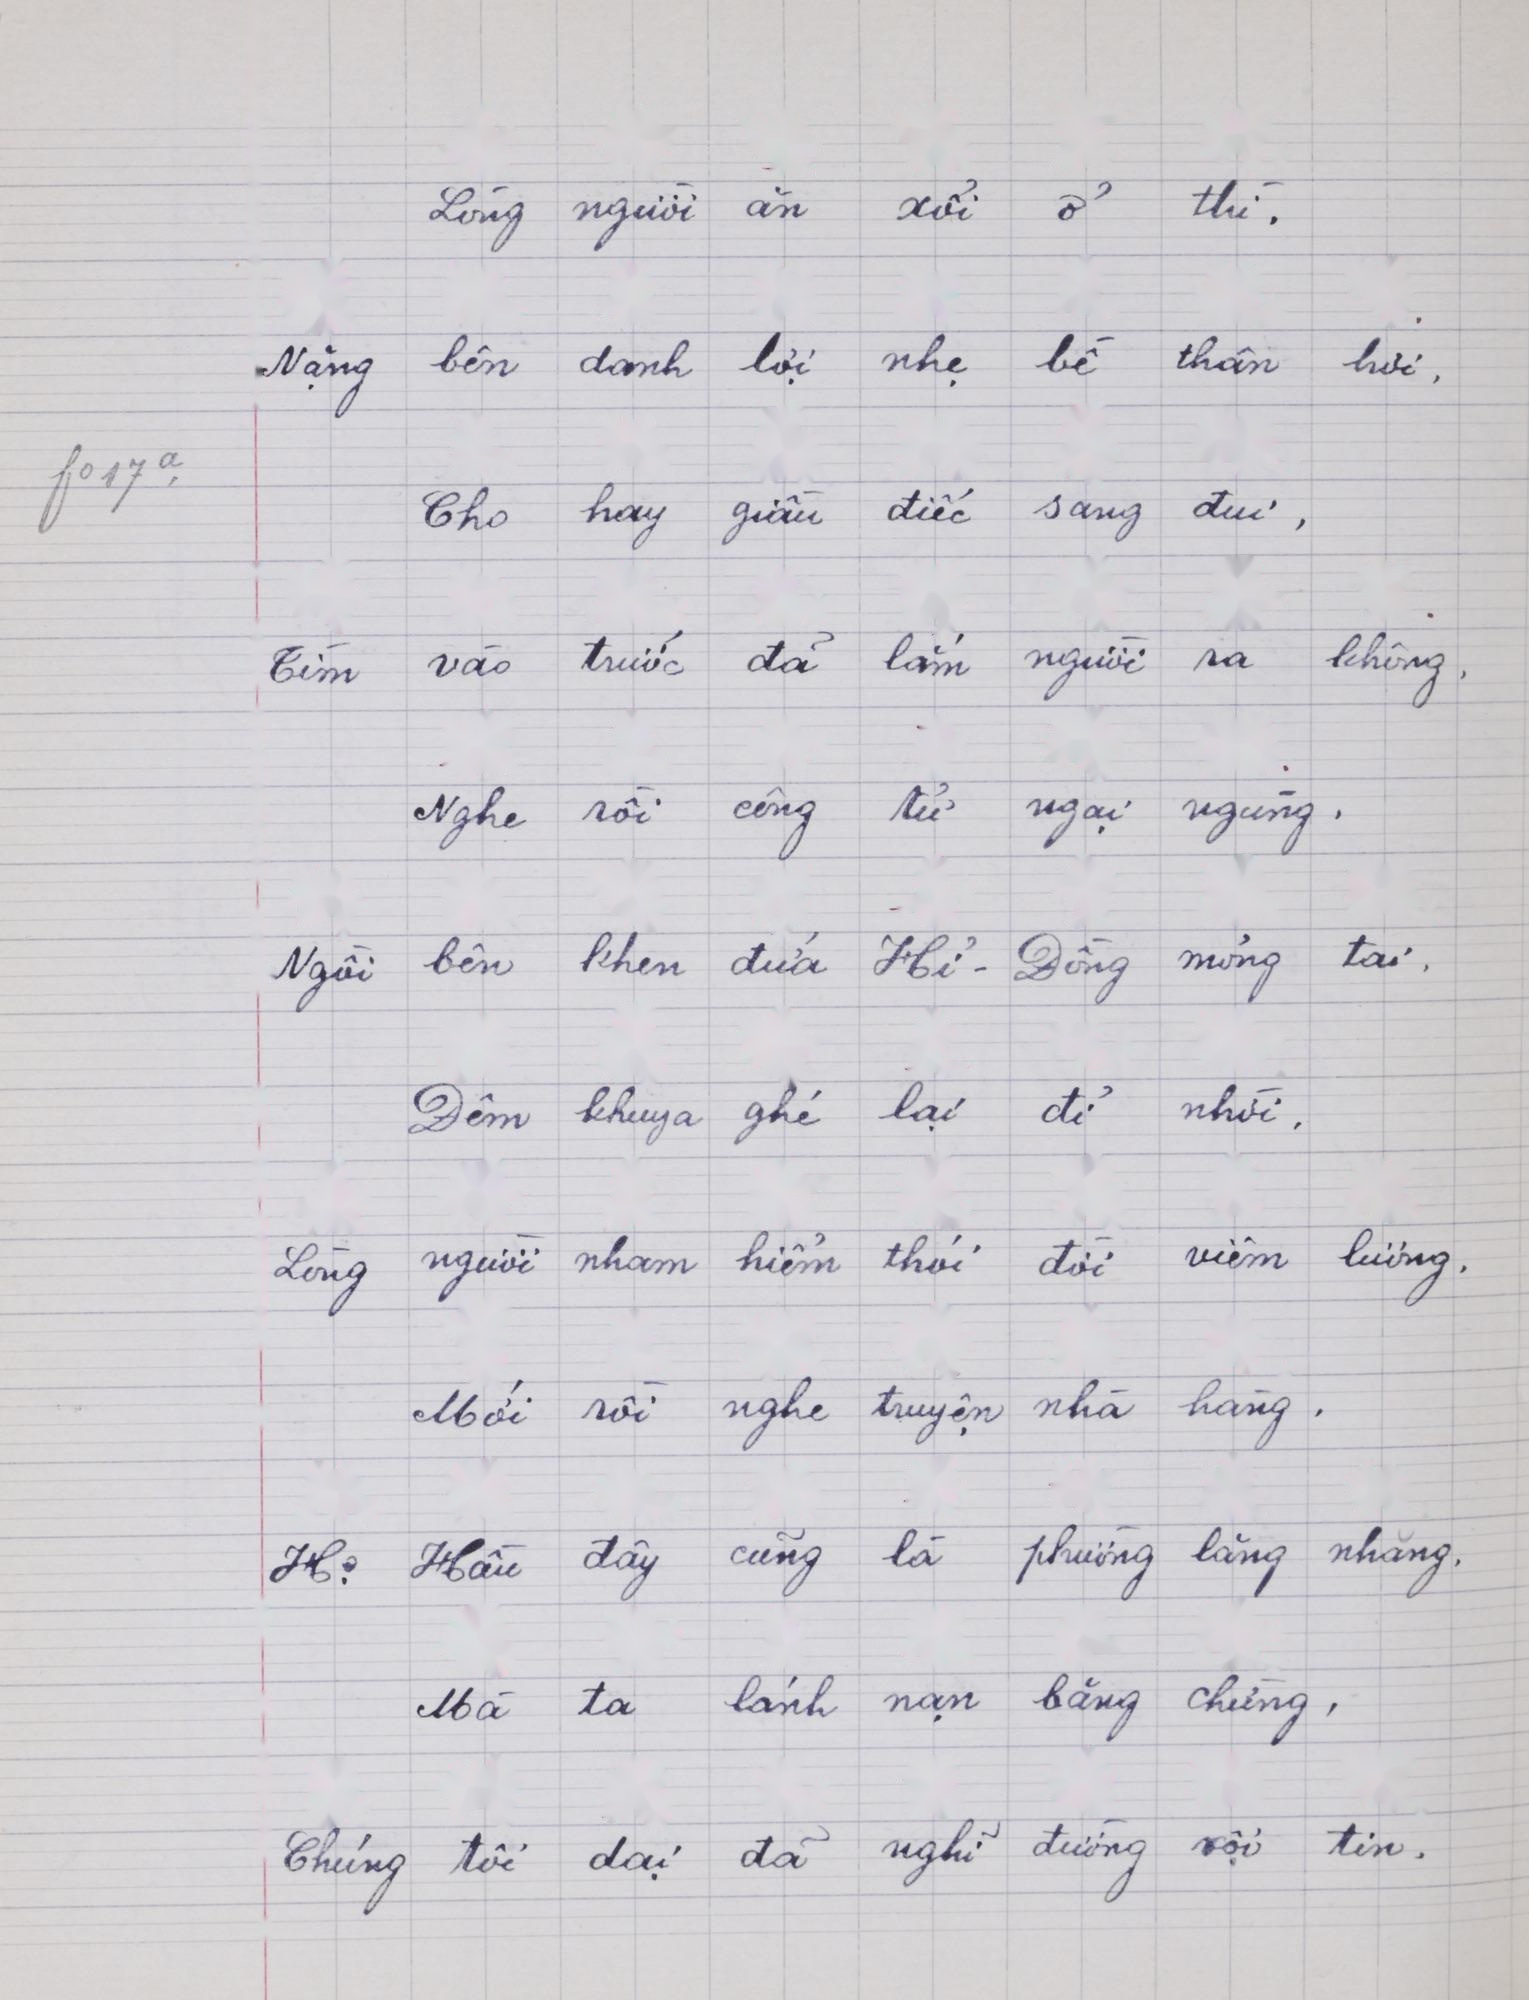 Lòng người ăn xổi ở thì.
Nặng bên danh lợi nhẹ bề thân hơi,
fo 17a.
Cho hay giầu điếc sang đui,
Tìm vào trước đã lắm người ra không,
Nghe rồi công tử ngại ngùng.
Ngồi bên khen đứa Hỉ-Đồng mỏng tai.
Đêm khuya ghé lại đỉ nhời,
Lòng người nham hiểm thói đời viêm lương.
Mới rồi nghe truyện nhà hàng.
Họ Hầu đây cũng là phường lăng nhăng.
Mà ta lánh nạn băng chừng,
Chúng tôi dại đã nghĩ đường vội tin.